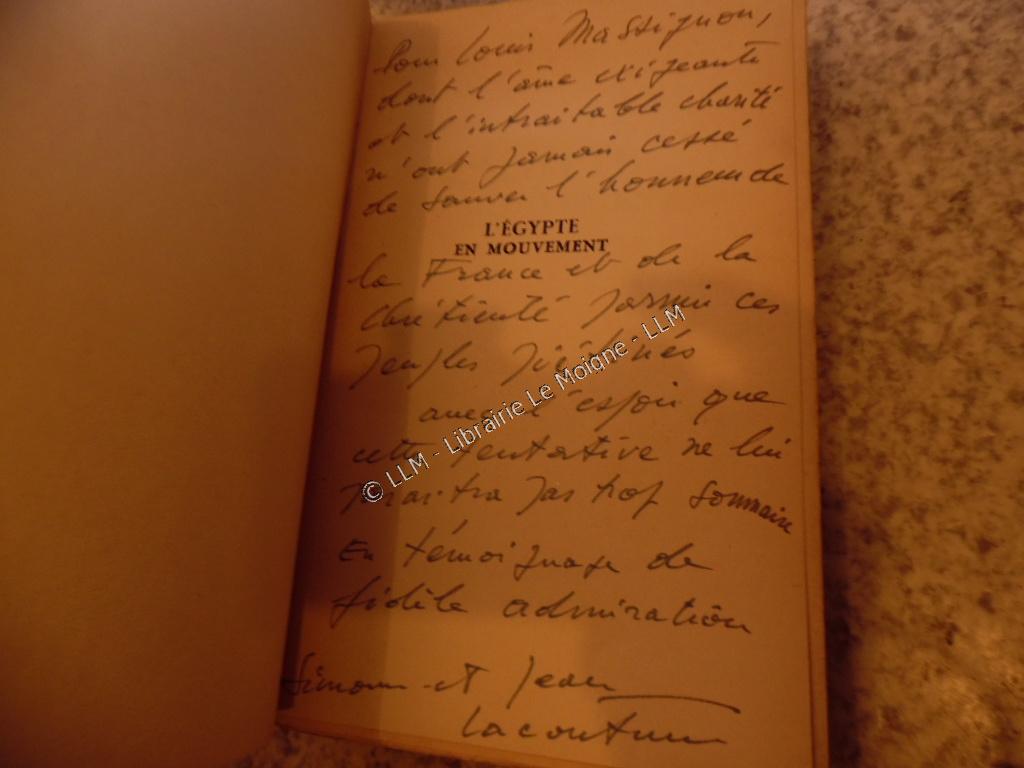 Pour Louis Massignon,
dont l'âme exigeante
et l'intraitable charité
n'ont jamais cessé
de sauver l'honneur de
L'ÉGYPTE
EN MOUVEMENT
la France et de la
Chrétienté parmi ces
peuples piétinés
avec l'espoir que
cette tentative ne lui
paraitra pas trop sommaire
En témoignage de
fidèle admiration
Simonne et Jean
Lacouture
© LLM - Librairie Le Moigne - LLM